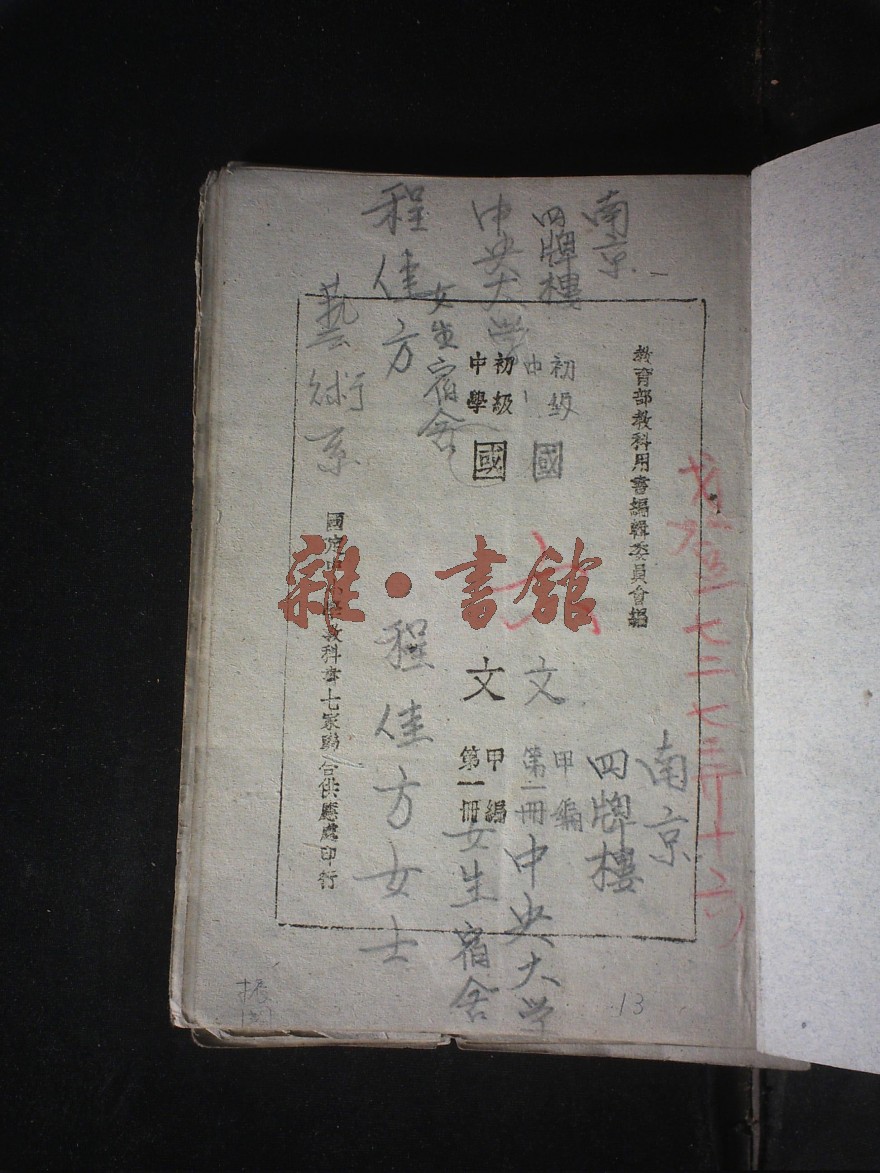 教育部教科用書編輯委員會編
初級
中學
國文
甲編
第一冊
國定中小學教科書七家聯合供應處印行
初級
中
國文
甲編
第一冊
南京
四牌樓
中央大學
女生宿舍
程佳方
藝術系
南京
四牌樓
中央大学
女生宿舍
程佳方女士
雜·書館
13